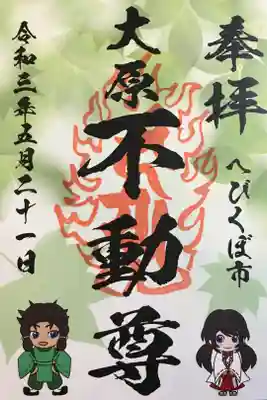 奉拝
へびくぼ市
大原
不動尊
令和三年五月二十一日